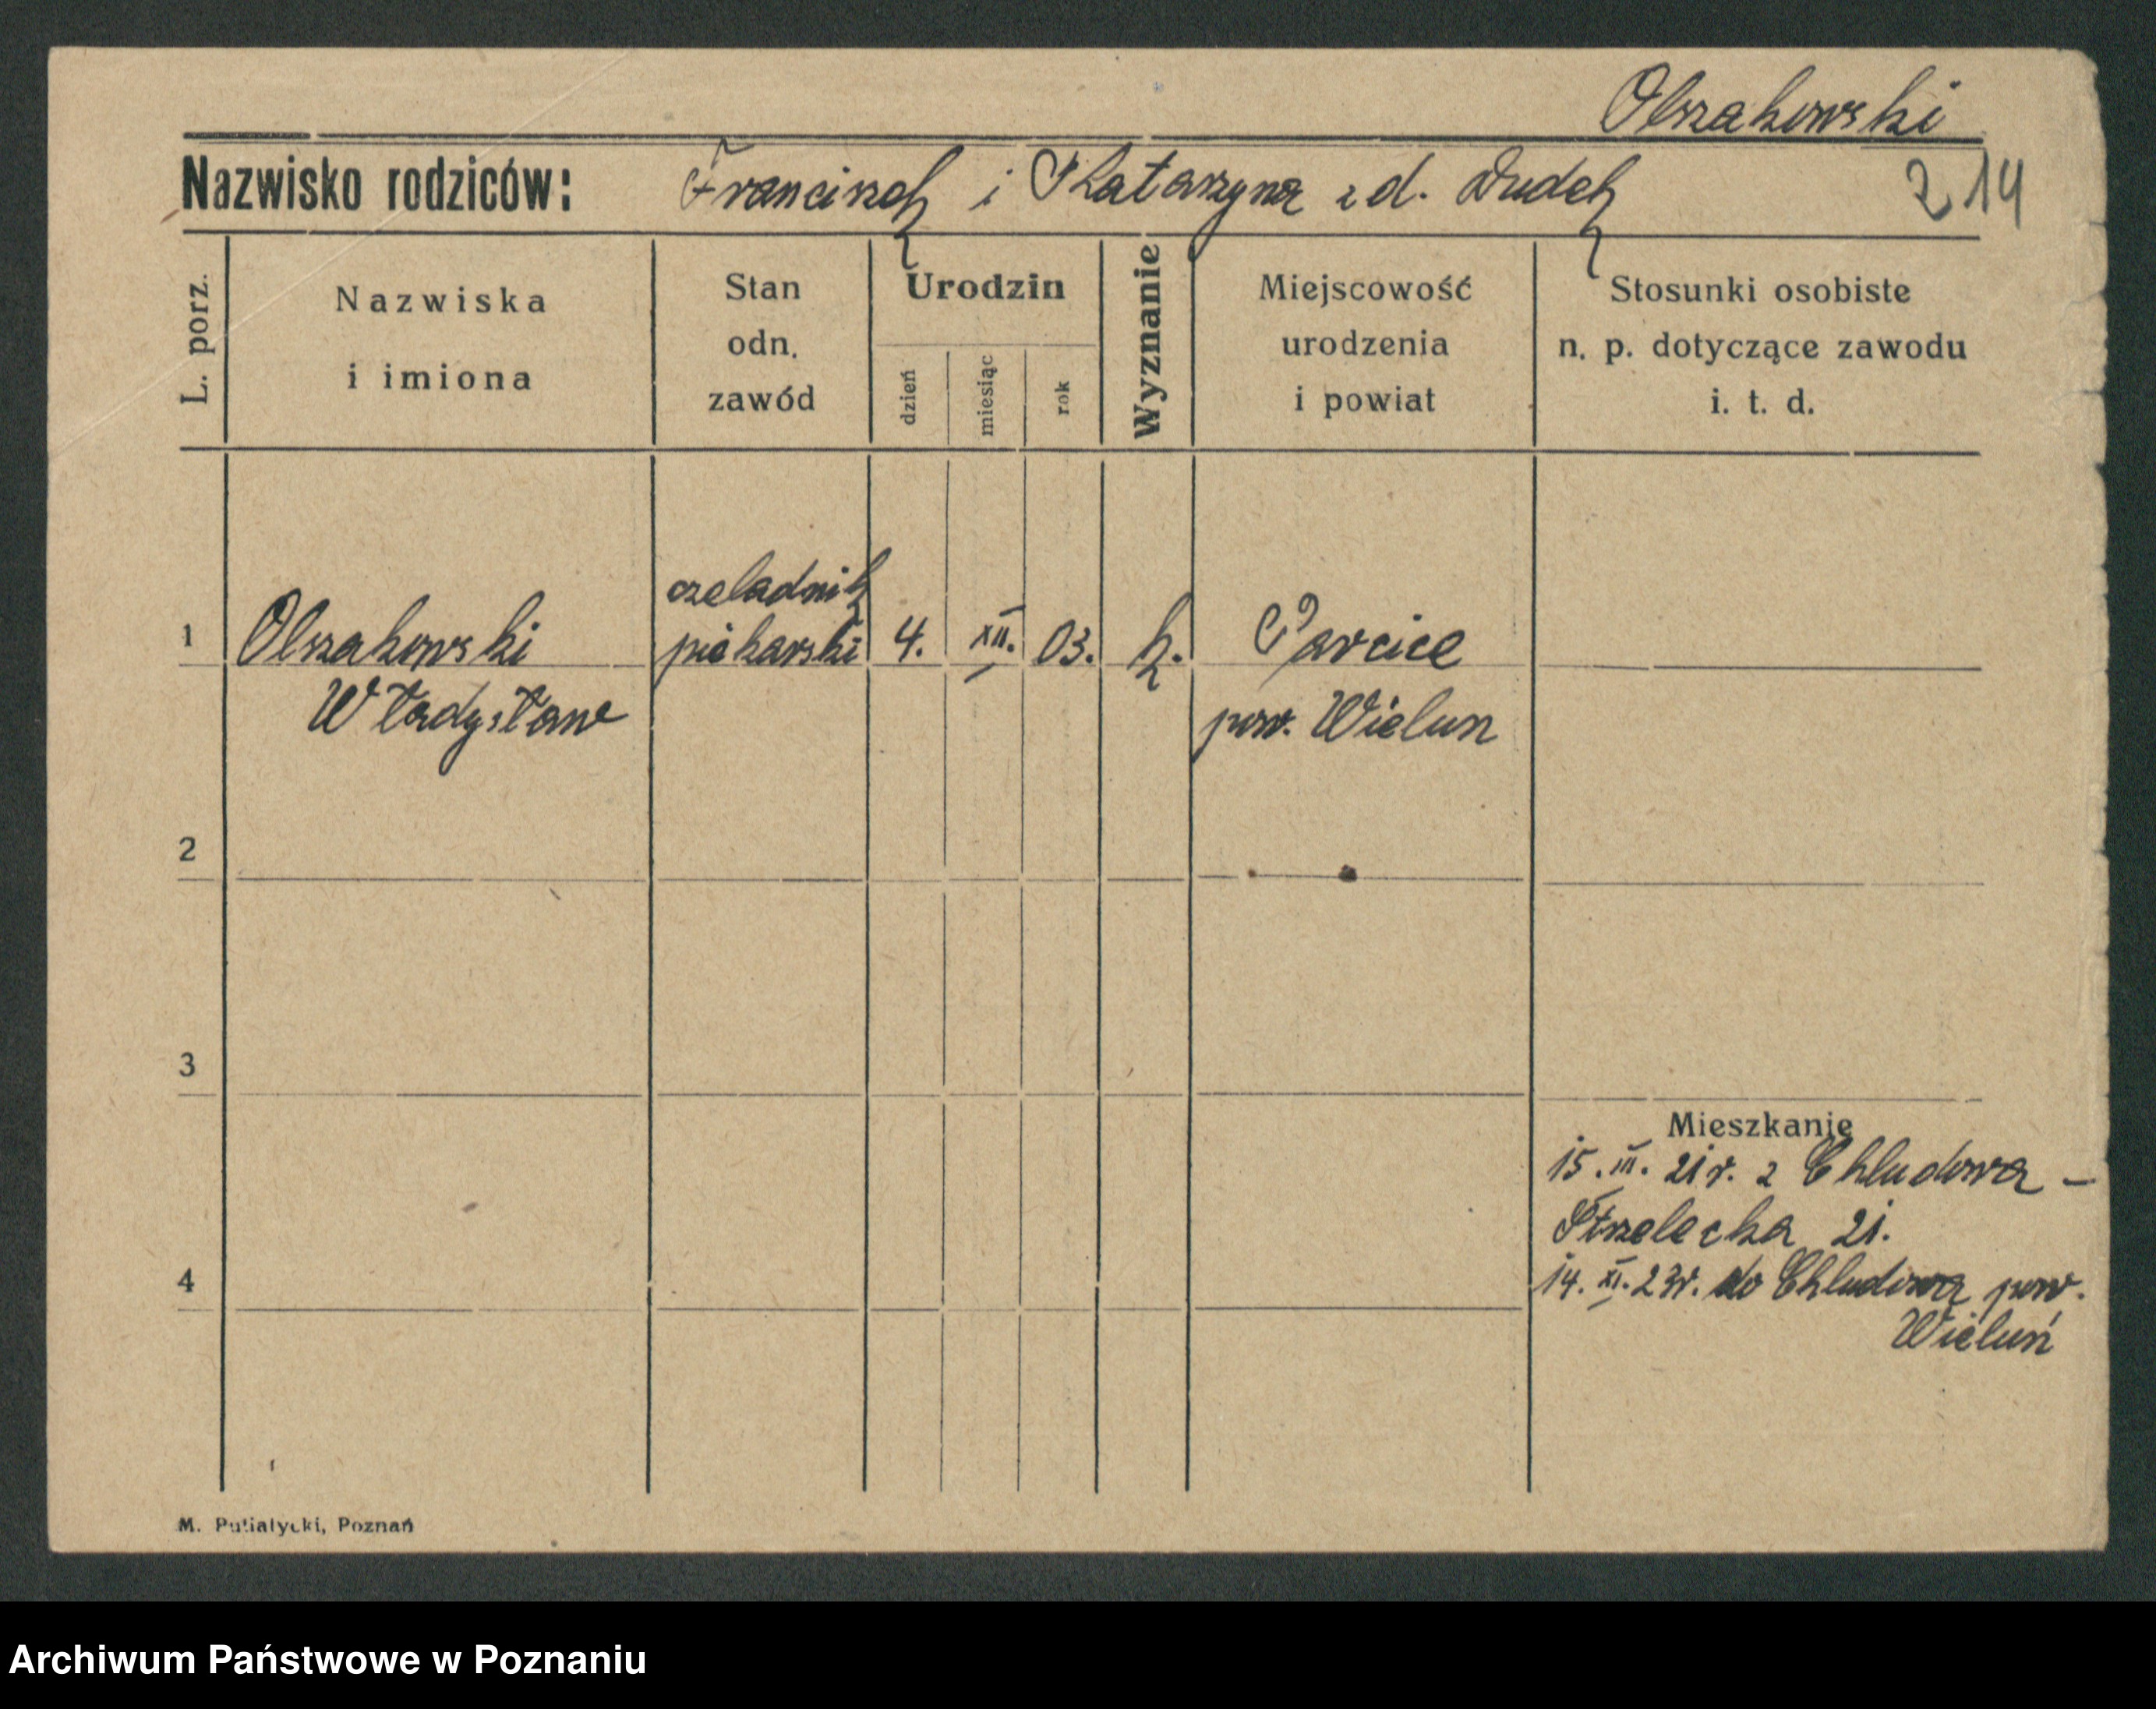 Olszakowski
Nazwisko rodziców: Franciszek i Katarzyna z d. Dudek 214
L. porz.
Nazwiska
i imiona
Stan
odn.
zawód
Urodzin
dzień
miesiąc
rok
Wyznanie
Miejscowość
urodzenia
i powiat
Stosunki osobiste
n. p. dotyczące zawodu
i. t. d.
czeladnik
1 Olszakowski piekarski 4. XII. 03. k. Parcice
Władysław pow. Wielun
2
3
Mieszkanie
15. III. 21 r. z Chludowa -
Strzelecka 21.
4 14. XI. 23 r. do Chludowa pow.
Wieluń
M. Putiatycki, Poznań
Archiwum Państwowe w Poznaniu